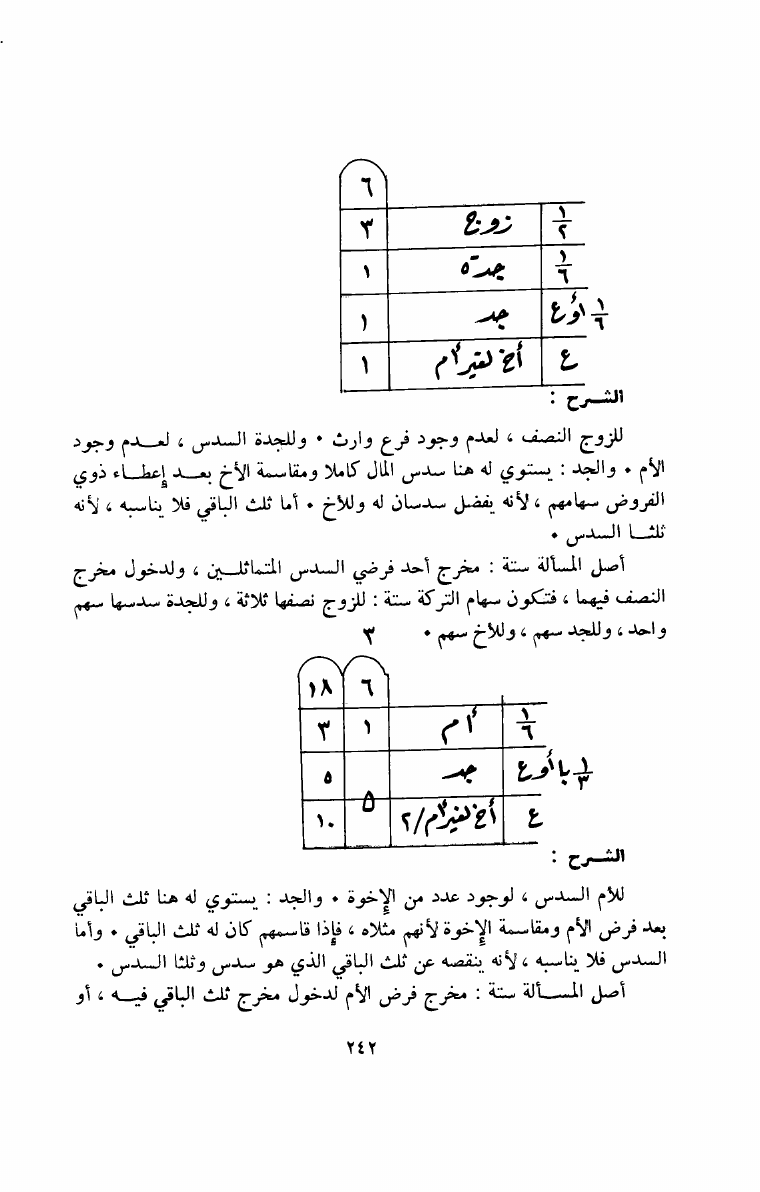 ٦
١/٢ زوج ٣
١/٦ جدة ١
١/٦ أو ع جد ١
ع أخ لغير أم ١
الشرح :
للزوج النصف ، لعدم وجود فرع وارث • وللجدة السدس ، لعدم وجود
الأم • والجد : يستوي له هنا سدس المال كاملا ومقاسمة الأخ بعد إعطاء ذوي
الفروض سهامهم ، لأنه يفضل سدسان له وللأخ • أما ثلث الباقي فلا يناسبه ، لأنه
ثلثا السدس •
أصل المسألة ستة : مخرج أحد فرضي السدس المتماثلين ، ولدخول مخرج
النصف فيهما ، فتكون سهام التركة ستة : للزوج نصفها ثلاثة ، وللجدة سدسها سهم
واحد ، وللجد سهم ، وللأخ سهم •
٣
٦ ١٨
١/٦ أم ١ ٣
١/٣ با أو ع جد ٥
٥
ع أخ لغير أم/٢ ١٠
الشرح :
للأم السدس ، لوجود عدد من الإخوة • والجد : يستوي له هنا ثلث الباقي
بعد فرض الأم ومقاسمة الإخوة لأنهم مثلاه ، فإذا قاسمهم كان له ثلث الباقي • وأما
السدس فلا يناسبه ، لأنه ينقصه عن ثلث الباقي الذي هو سدس وثلثا السدس •
أصل المسألة ستة : مخرج فرض الأم لدخول مخرج ثلث الباقي فيه ، أو
٢٤٢